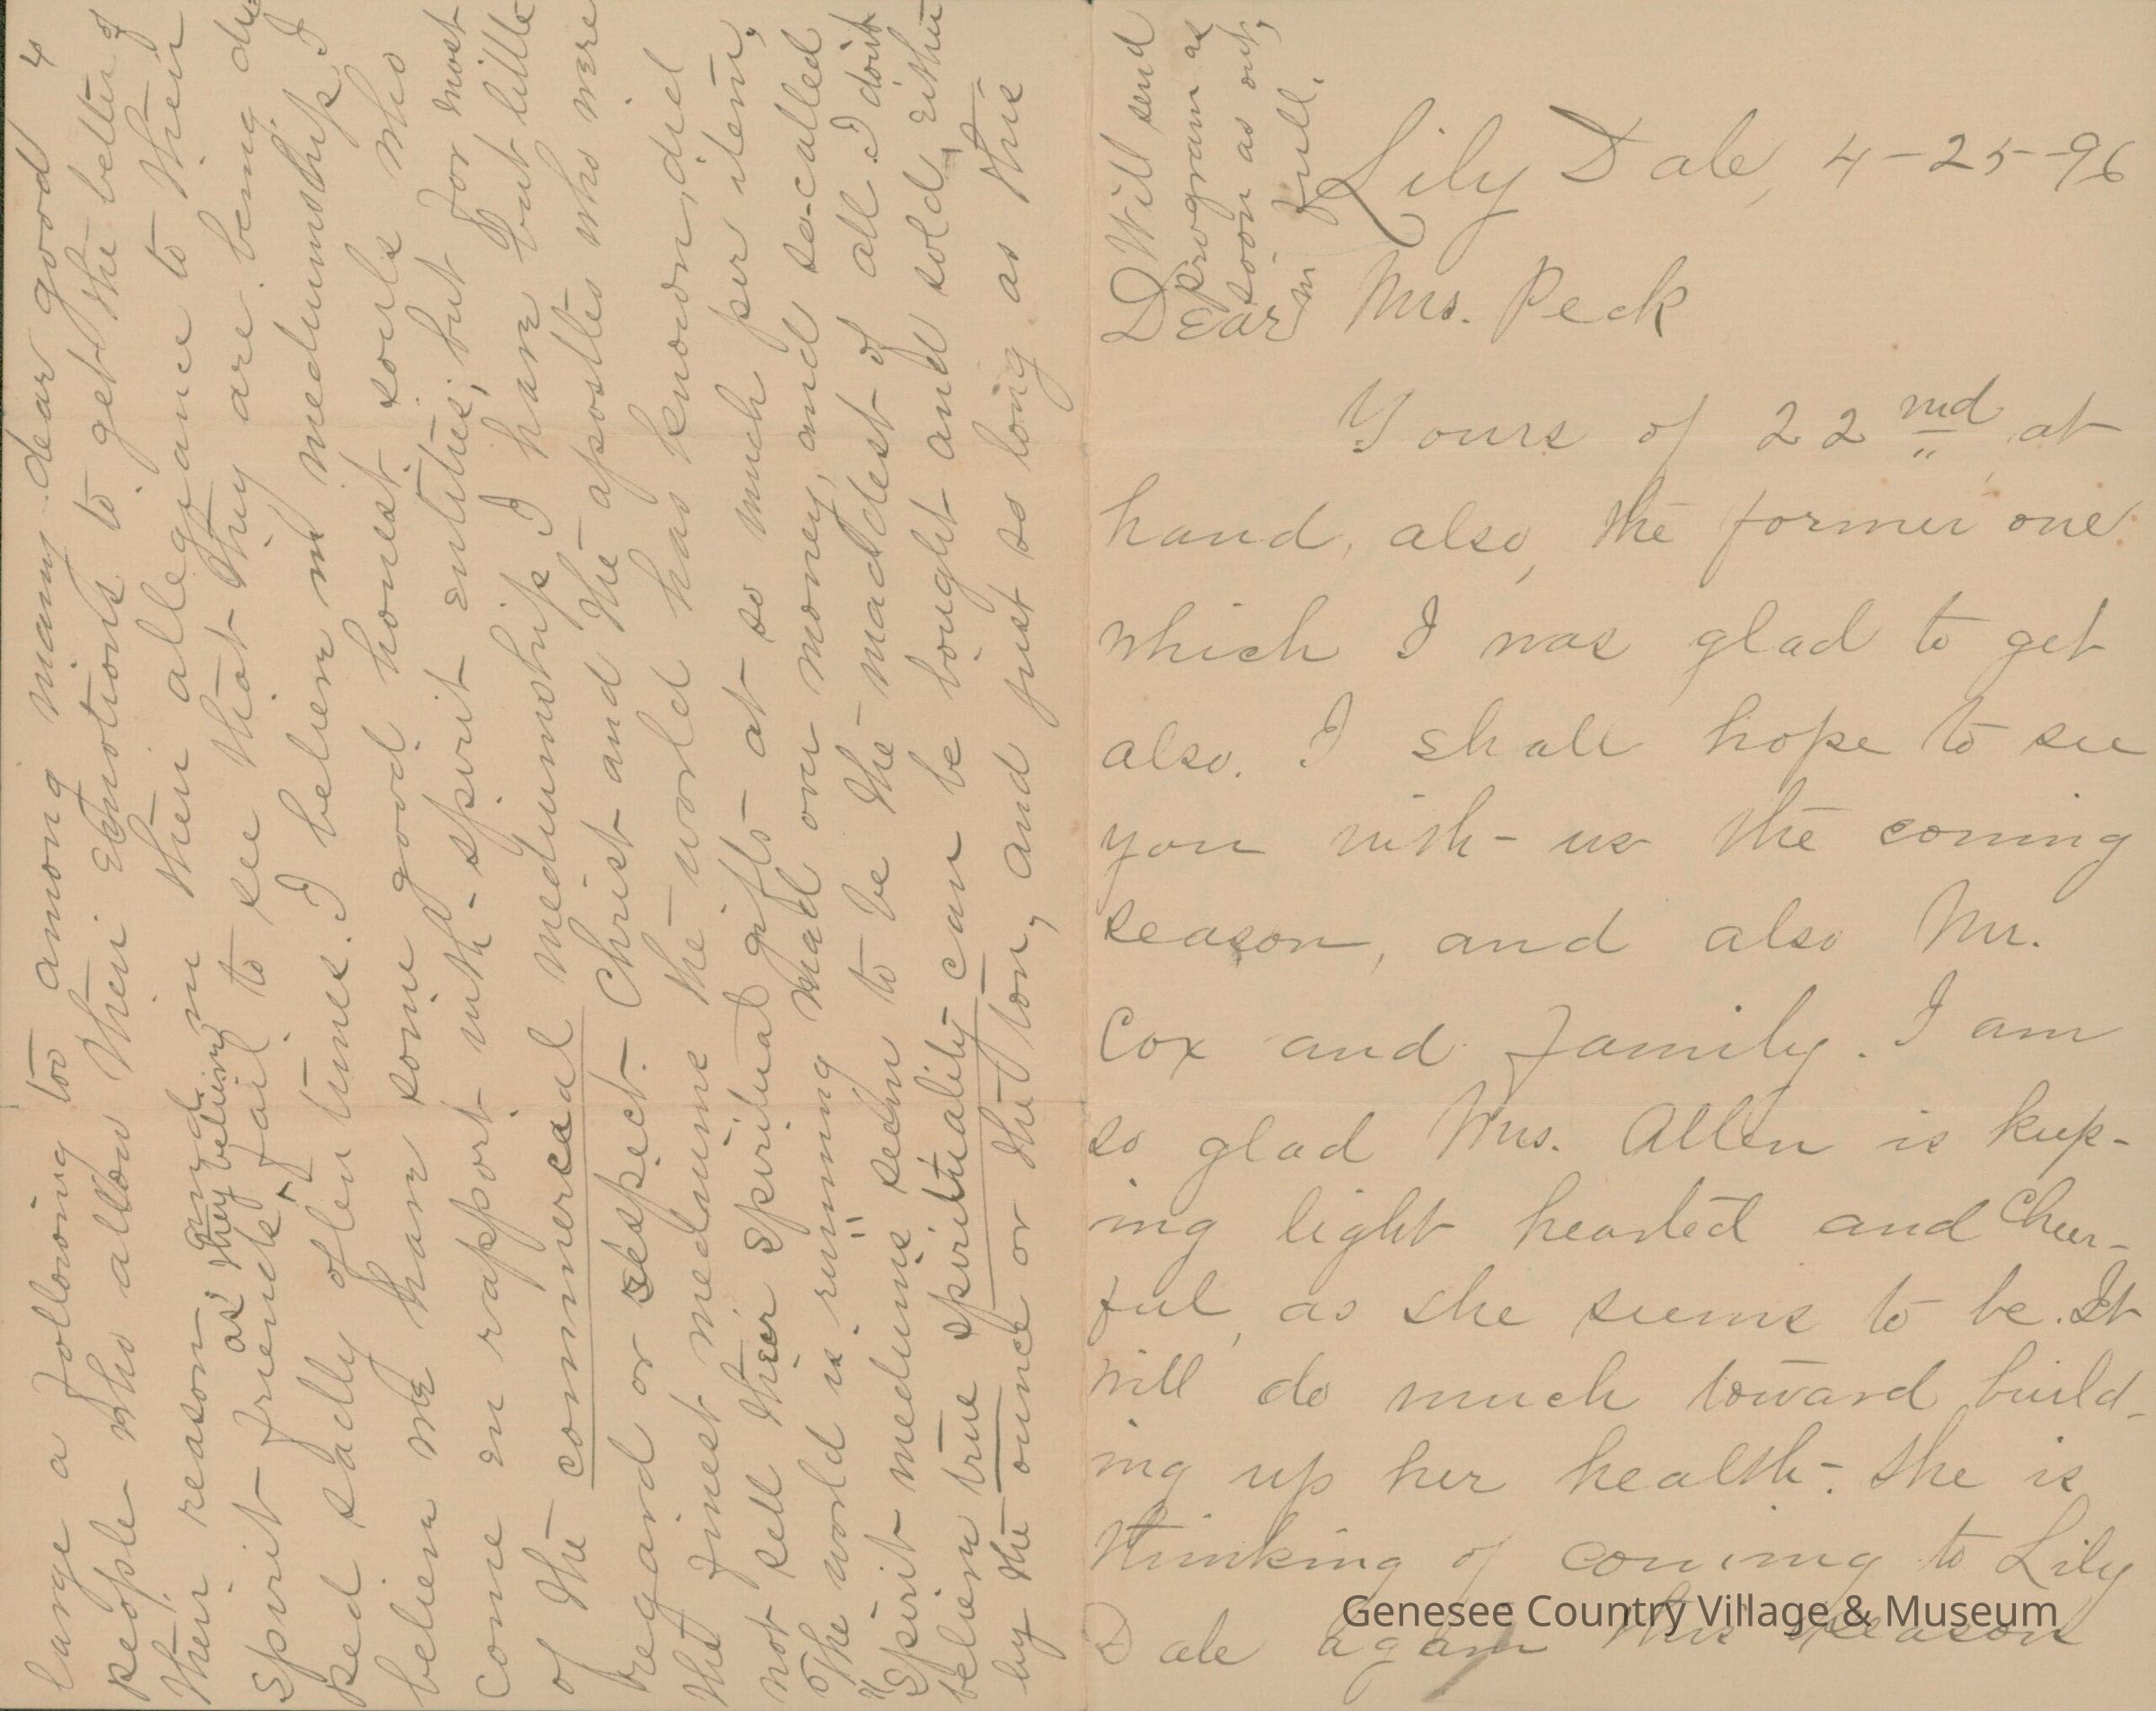 Will send
program as
soon as out,
in full.
Lily Dale, 4-25-96
Dear Mrs. Peck
Yours of 22nd at
hand, also, the former one
which I was glad to get
also. I shall hope to see
you with us the coming
season, and also Mr.
Cox and family. I am
so glad Mrs. Allen is keep-
ing light hearted and cheer-
ful, as she seems to be. It
will do much toward build-
ing up her health- She is
thinking of coming to Lily
Dale again this season
4
large a following too among many dear good
people who allow their emotions to get the better of
their reason and in their allegiance to their
spirit friends, as they believe, fail to see that they are being du-
ped sadly often times. I believe in mediumship I
believe we have some good honest souls who
come en rapport with spirit entities; but for most
of the commercial mediumship I have but little
regard or respect. Christ and the apostles who were
the finest mediums the world has known, did
not sell their spiritual gifts at so much per item,
The world is running mad over money, and so-called
"Spirit mediums seem to be the maddest of all. I dont
believe true spirituality can be bought and sold, either
by the ounce or the ton, and just so long as this
Genesee Country Village & Museum